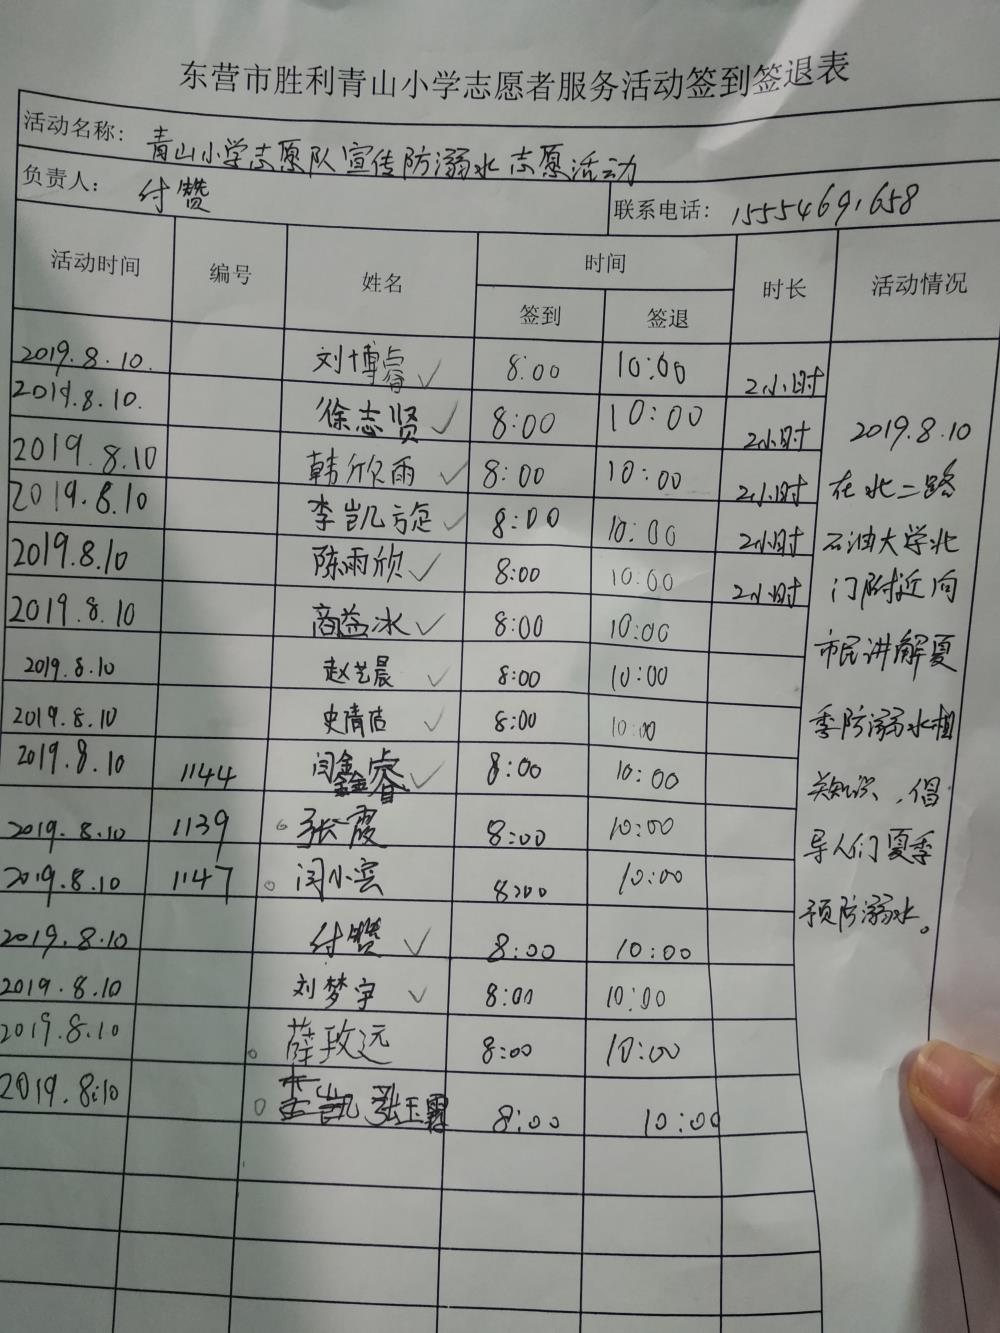 东营市胜利青山小学志愿者服务活动签到签退表
活动名称: 青山小学志愿队宣传防溺水志愿活动
负责人: 付赞 联系电话: 15554691658
活动时间 编号 姓名 时间 时长 活动情况
签到 签退
2019.8.10. 刘博睿 ✓ 8:00 10:00 2小时
2019.8.10. 徐志贤 ✓ 8:00 10:00 2小时
2019.8.10 韩欣雨 ✓ 8:00 10:00 2小时
2019.8.10 李凯旋 ✓ 8:00 10:00 2小时
2019.8.10 陈雨欣 ✓ 8:00 10:00 2小时
2019.8.10 商益冰 ✓ 8:00 10:00
2019.8.10 赵艺晨 ✓ 8:00 10:00
2019.8.10 史清洁 ✓ 8:00 10:00
2019.8.10 1144 闫鑫睿 ✓ 8:00 10:00
2019.8.10 1139 张霞 8:00 10:00
2019.8.10 1147 闫小宾 8:00 10:00
2019.8.10 付赞 ✓ 8:00 10:00
2019.8.10 刘梦宇 ✓ 8:00 10:00
2019.8.10 薛玫远 8:00 10:00
2019.8.10 张玉霖 8:00 10:00
2019.8.10
在北二路
石油大学北
门附近向
市民讲解夏
季防溺水相
关知识、倡
导人们夏季
预防溺水。